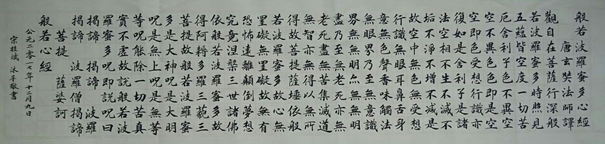 般若波羅蜜多心經
唐玄奘法師譯
觀自在菩薩行深般
若波羅蜜多時照見
五蘊皆空度一切苦
厄舍利子色不異空
空不異色色即是空
空即是色受想行識亦
復如是舍利子是諸
法空相不生不滅不
垢不淨不增不減是
故空中無色無受想
行識無眼耳鼻舌身
意無色聲香味觸法
無眼界乃至無意識
界無無明亦無無明
盡乃至無老死亦無
老死盡無苦集滅道
無智亦無得以無所
得故菩提薩埵依般
若波羅蜜多故心無
罣礙無罣礙故無有
恐怖遠離顛倒夢想
究竟涅槃三世諸佛
依般若波羅蜜多故
得阿耨多羅三藐三
菩提故知般若波羅蜜
多是大神呪是大明
呪是無上呪是無等
等呪能除一切苦真
實不虛故說般若波
羅蜜多呪即說呪曰
揭諦揭諦 波羅
揭諦 波羅僧揭諦
菩提 薩婆訶
般若心經
公元二零一年十二月九日
沐手敬書